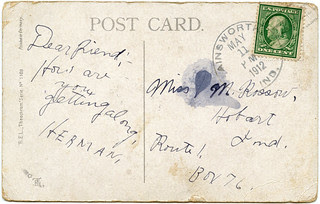 POST CARD.
Dear friend,-
How are
you
getting along,
HERMAN,
AINSWORTH
MAY
11
1912
IND.
U.S. POSTAGE
ONE CENT
Miss M. Rossow,
Hobart
Ind.
Route 1,
BOX 76.